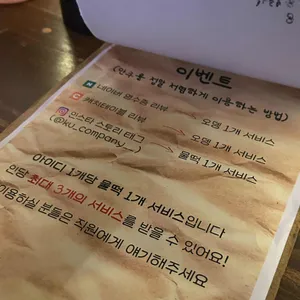 이벤트
<만수용 정말 저렴하게 이용하는 방법>
네이버 영수증 리뷰 → 오뎅 1개 서비스
캐치테이블 리뷰 → 오뎅 1개 서비스
인스타 스토리 태그 → 물떡 1개 서비스
(@ku_company__)
아이디 1개당 물떡 1개 서비스입니다
인당 최대 3개의 서비스를 받을 수 있어요!
이용하실 분들은 직원에게 얘기해주세요